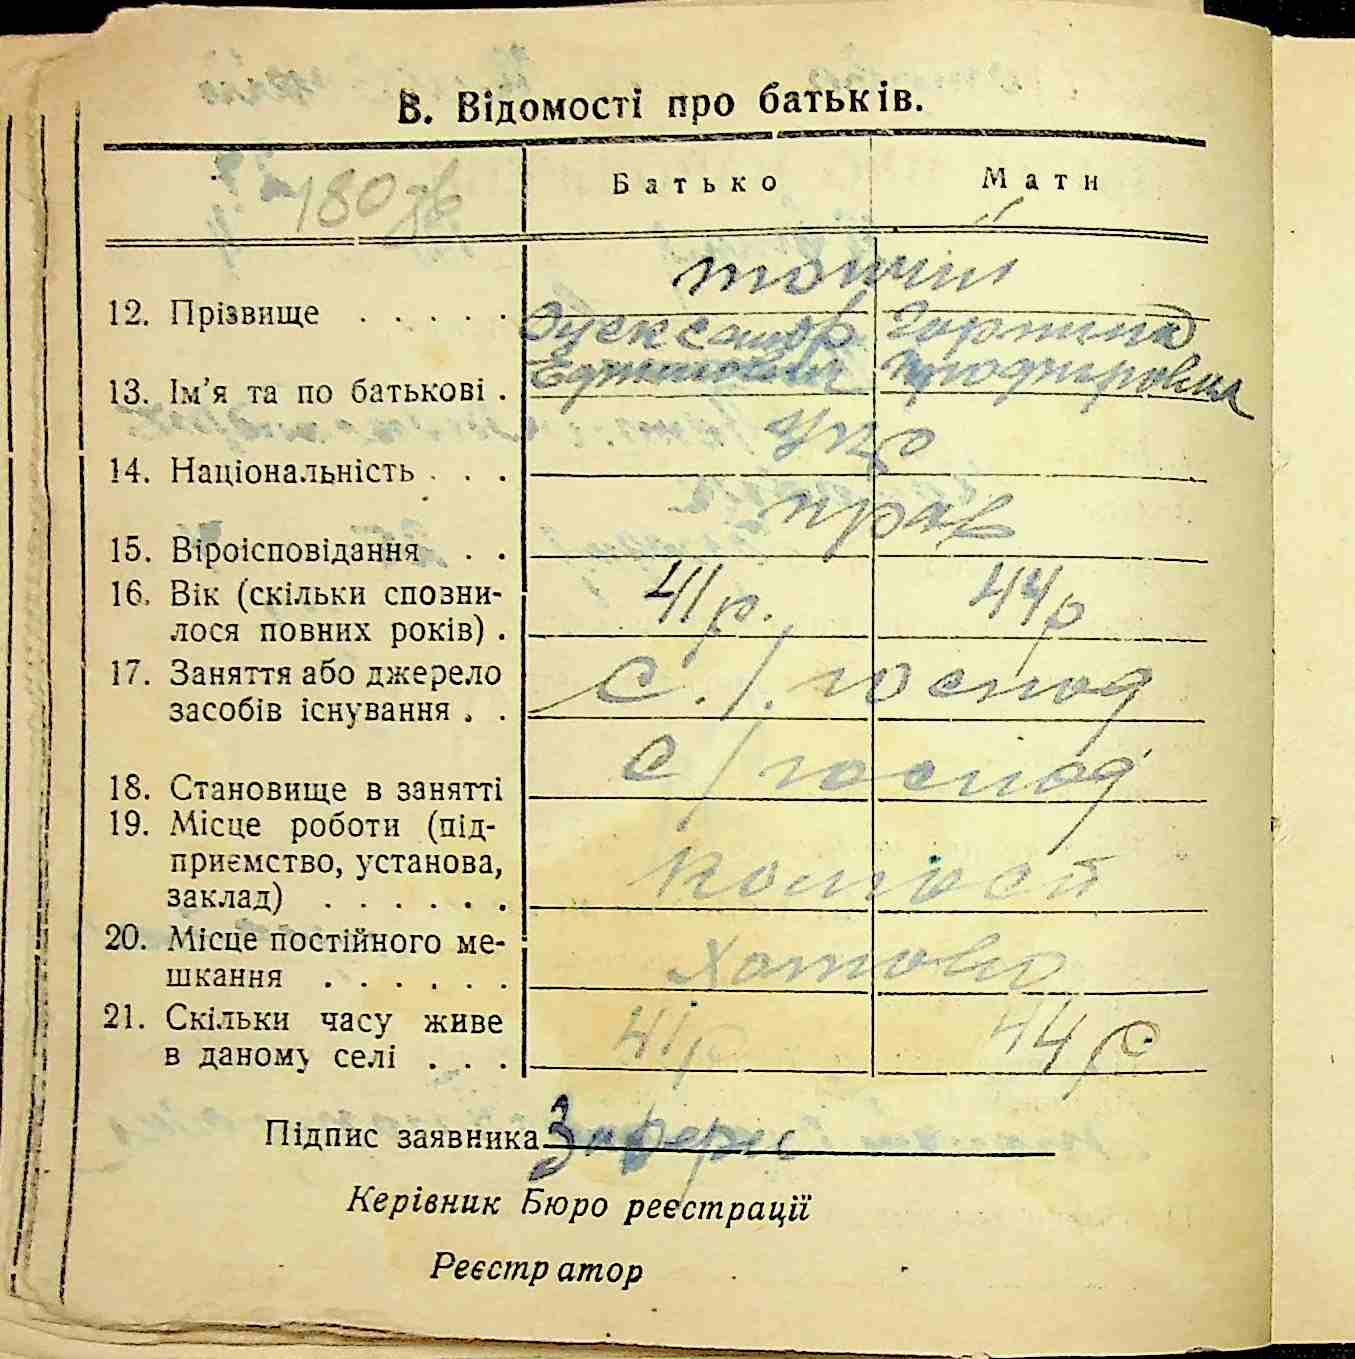 В. Відомості про батьків.
180 зв
Батько Мати
12. Прізвище . . . . .
Олександр
13. Ім'я та по батькові .
укр
14. Національність . . .
прав
15. Віроісповідання . .
16. Вік (скільки спозни-
лося повних років) . 41 р. 44 р
17. Заняття або джерело
засобів існування . . с./.господ
18. Становище в занятті с/господ
19. Місце роботи (під-
приємство, установа,
заклад) . . . . . .
20. Місце постійного ме-
шкання . . . . . . Хотово
21. Скільки часу живе
в даному селі . . . 41р 44 р
Підпис заявника
Керівник Бюро реєстрації
Реєстратор